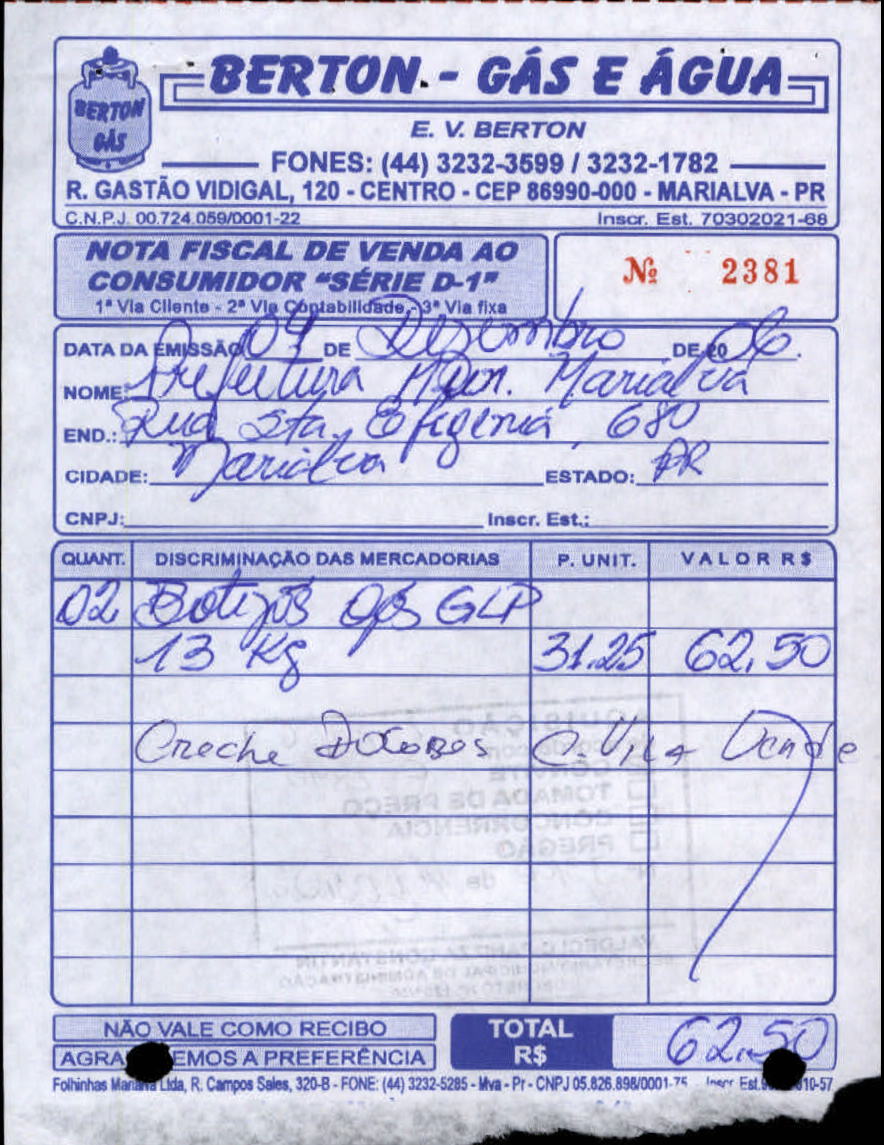 BERTON - GÁS E ÁGUA
BERTON
GÁS
E. V. BERTON
FONES: (44) 3232-3599 / 3232-1782
R. GASTÃO VIDIGAL, 120 - CENTRO - CEP 86990-000 - MARIALVA - PR
C.N.P.J. 00.724.059/0001-22 Inscr. Est. 70302021-68
NOTA FISCAL DE VENDA AO
CONSUMIDOR "SÉRIE D-1"
1ª Via Cliente - 2ª Via Contabilidade - 3ª Via fixa
Nº 2381
DATA DA EMISSÃO 04 DE Dezembro DE 20 06.
NOME: Prefeitura Mun. Marialva
END.: Rua Sta. Efigenia, 680
CIDADE: Marialva ESTADO: PR
CNPJ: Inscr. Est.:
QUANT. DISCRIMINAÇÃO DAS MERCADORIAS P. UNIT. VALOR R$
02 Botijos gás GLP
13 Kg 31.25 62,50
Creche
AQUISIÇÃO
CONVITE
TOMADA DE PREÇO
CONCORRENCIA
PREGÃO
NÃO VALE COMO RECIBO
EMOS A PREFERÊNCIA
TOTAL
R$ 62.50
Folhinhas Ltda, R. Campos Sales, 320-B - FONE: (44) 3232-5285 - Mva - Pr - CNPJ 05.826.898/0001-75